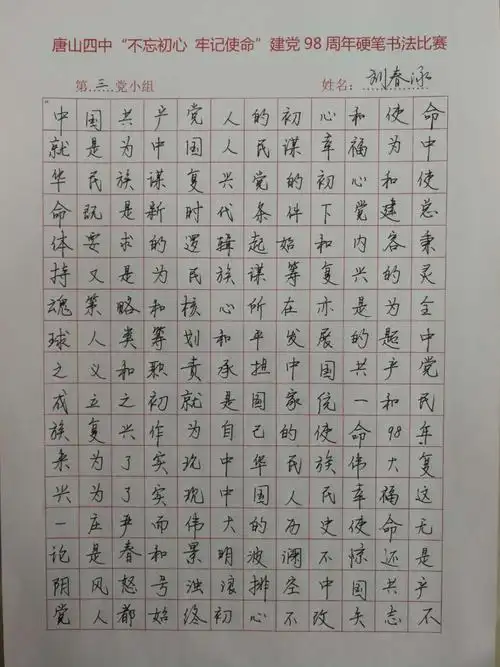 唐山四中“不忘初心 牢记使命”建党98周年硬笔书法比赛
第三党小组 姓名:刘春泳
中国共产党人的初心和使命
就是为中国人民谋幸福为中
华民族谋复兴党的初心和使
命既是新时代条件下党建总
体要求的逻辑起始和内容秉
持又是为民族谋筹复兴的灵
魂策略和核心所在亦是为全
球人类筹划和平发展的题中
之义和职责承担中国共产党
成立之初就是国家统一和民
族复兴作为自己的使命98年
来为了实现中华民族伟大复
兴为了实现中国人民幸福这
一庄严而伟大的历史使命无
论是春和景明波澜不惊还是
阴风怒号浊浪排空中国共产
党人都始终初心不改矢志不